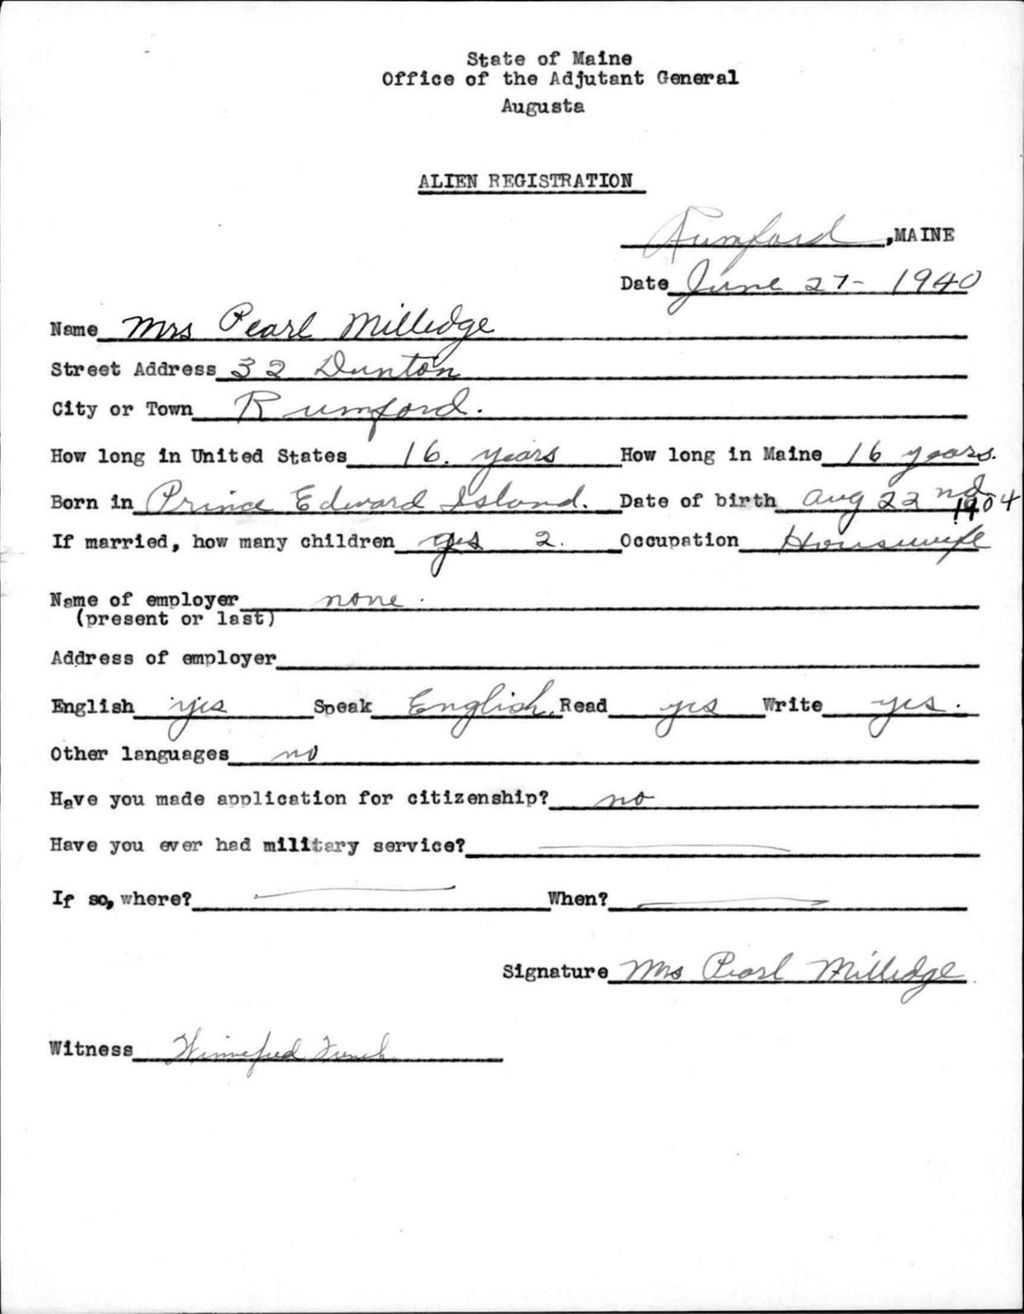 State of Maine
Office of the Adjutant General
Augusta
ALIEN REGISTRATION
Rumford, MAINE
Date June 27 - 1940
Name Mrs Pearl Milledge
Street Address 32 Dunton
City or Town Rumford.
How long in United States 16. years How long in Maine 16 years.
Born in Prince Edward Island. Date of birth Aug 22nd 1904
If married, how many children yes 2. Occupation Housewife
Name of employer none.
(present or last)
Address of employer
English yes Speak English. Read yes Write yes.
Other languages no
Have you made application for citizenship? no
Have you ever had military service?
If so, where? When?
Signature Mrs Pearl Milledge
Witness Winnefred French